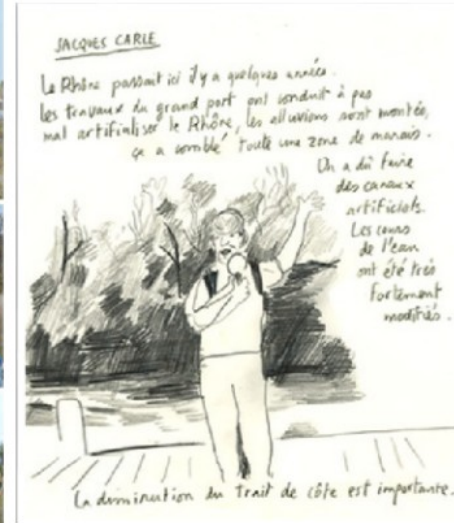 JACQUES CARLE
Le Rhône passait ici il y a quelques années.
les travaux du grand port ont conduit à pas
mal artificialiser le Rhône, les alluvions sont montées,
ça a comblé toute une zone de marais.
On a dû faire
des canaux
artificiels.
Les cours
de l'eau
ont été très
fortement
modifiés.
La diminution du trait de côte est importante.